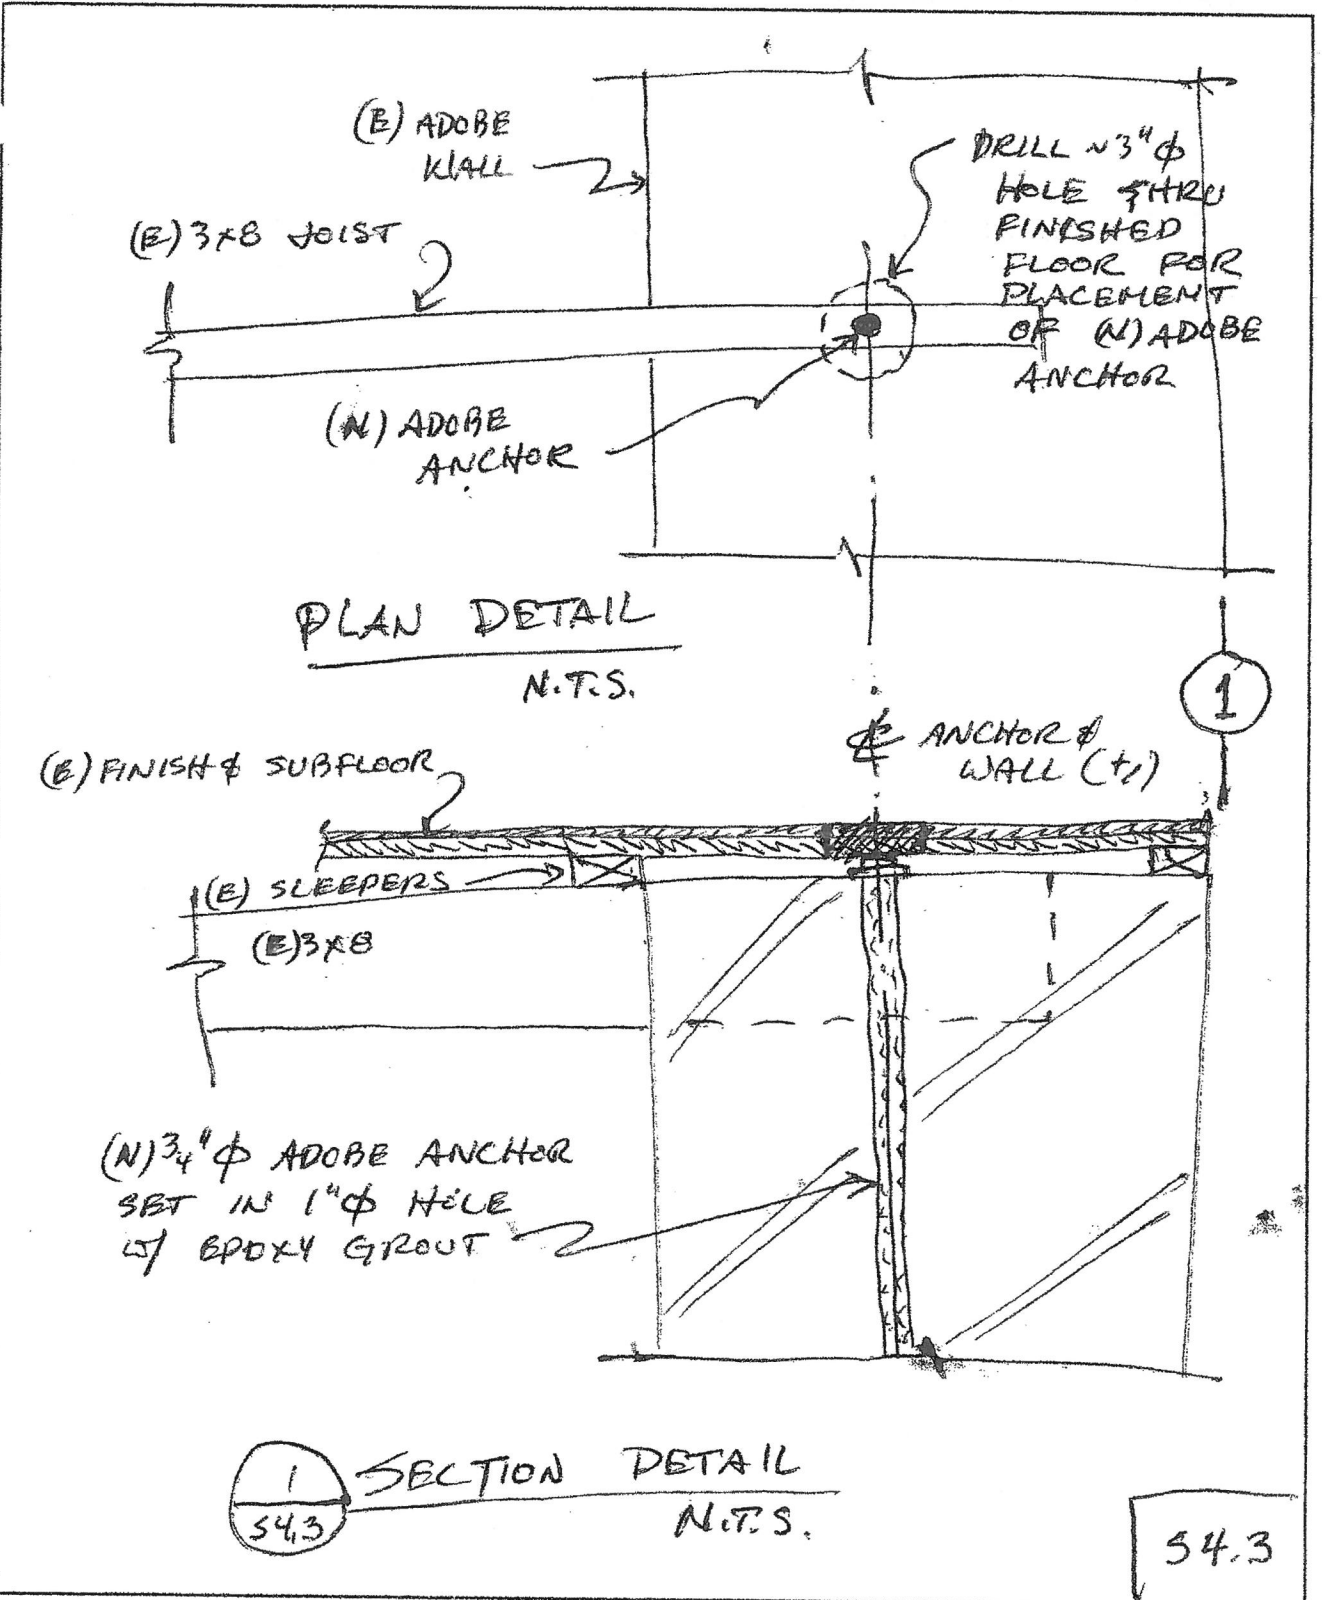 (E) ADOBE
WALL
(E) 3x8 JOIST
DRILL ~3"ϕ
HOLE THRU
FINISHED
FLOOR FOR
PLACEMENT
OF (N) ADOBE
ANCHOR
(N) ADOBE
ANCHOR
PLAN DETAIL
N.T.S.
1
℄ ANCHOR &
WALL (+/-)
(E) FINISH & SUBFLOOR
(E) SLEEPERS
(E) 3x8
(N) 3/4"ϕ ADOBE ANCHOR
SET IN 1"ϕ HOLE
W/ EPOXY GROUT
1
S4.3
SECTION DETAIL
N.T.S.
S4.3